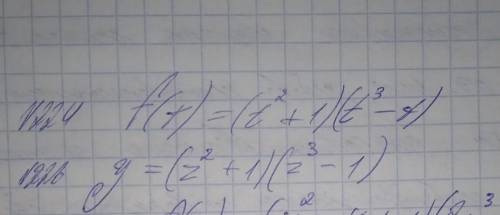 №224 f(t) = (t² + 1)(t³ - 4)
№226 y = (z² + 1)(z³ - 1)